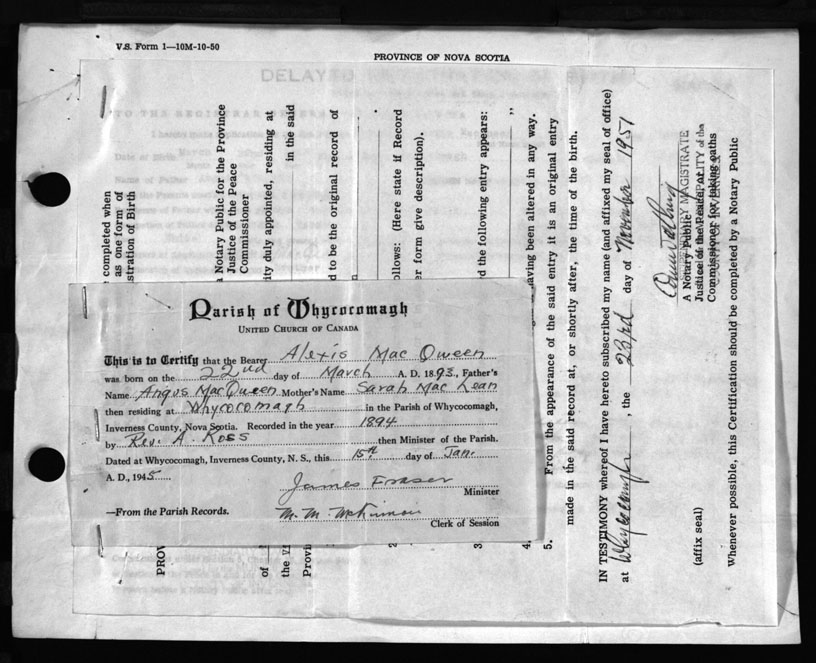 V.S. Form 1—10M-10-50
PROVINCE OF NOVA SCOTIA
DELAYED
Parish of Whycocomagh
UNITED CHURCH OF CANADA
This is to Certify that the Bearer Alexis Mac Qween
was born on the 22nd day of March A. D. 1893, Father's
Name Angus MacQueen Mother's Name Sarah Mac Lean
then residing at Whycocomagh in the Parish of Whycocomagh,
Inverness County, Nova Scotia. Recorded in the year 1894
by Rev. A. Ross then Minister of the Parish.
Dated at Whycocomagh, Inverness County, N. S., this 15th day of Jan.
A. D., 1945
James Fraser
Minister
—From the Parish Records. M. M. McKinnon
Clerk of Session
completed when
as one form of
stration of Birth
a Notary Public for the Province
Justice of the Peace
Commissioner
ity duly appointed, residing at
in the said
d to be the original record of
ollows: (Here state if Record
er form give description).
d the following entry appears:
"
having been altered in any way.
5. From the appearance of the said entry it is an original entry
made in the said record at, or shortly after, the time of the birth.
IN TESTIMONY whereof I have hereto subscribed my name (and affixed my seal of office)
at Whycocomagh, the 23rd day of November 1951
A Notary Public
Justice of the Peace
Commissioner for taking oaths
STIPENDIARY MAGISTRATE
MUNICIPALITY of the
COUNTY OF INVERNESS
(affix seal)
Whenever possible, this Certification should be completed by a Notary Public
PROV
of
the
Provin
2
3.
4.